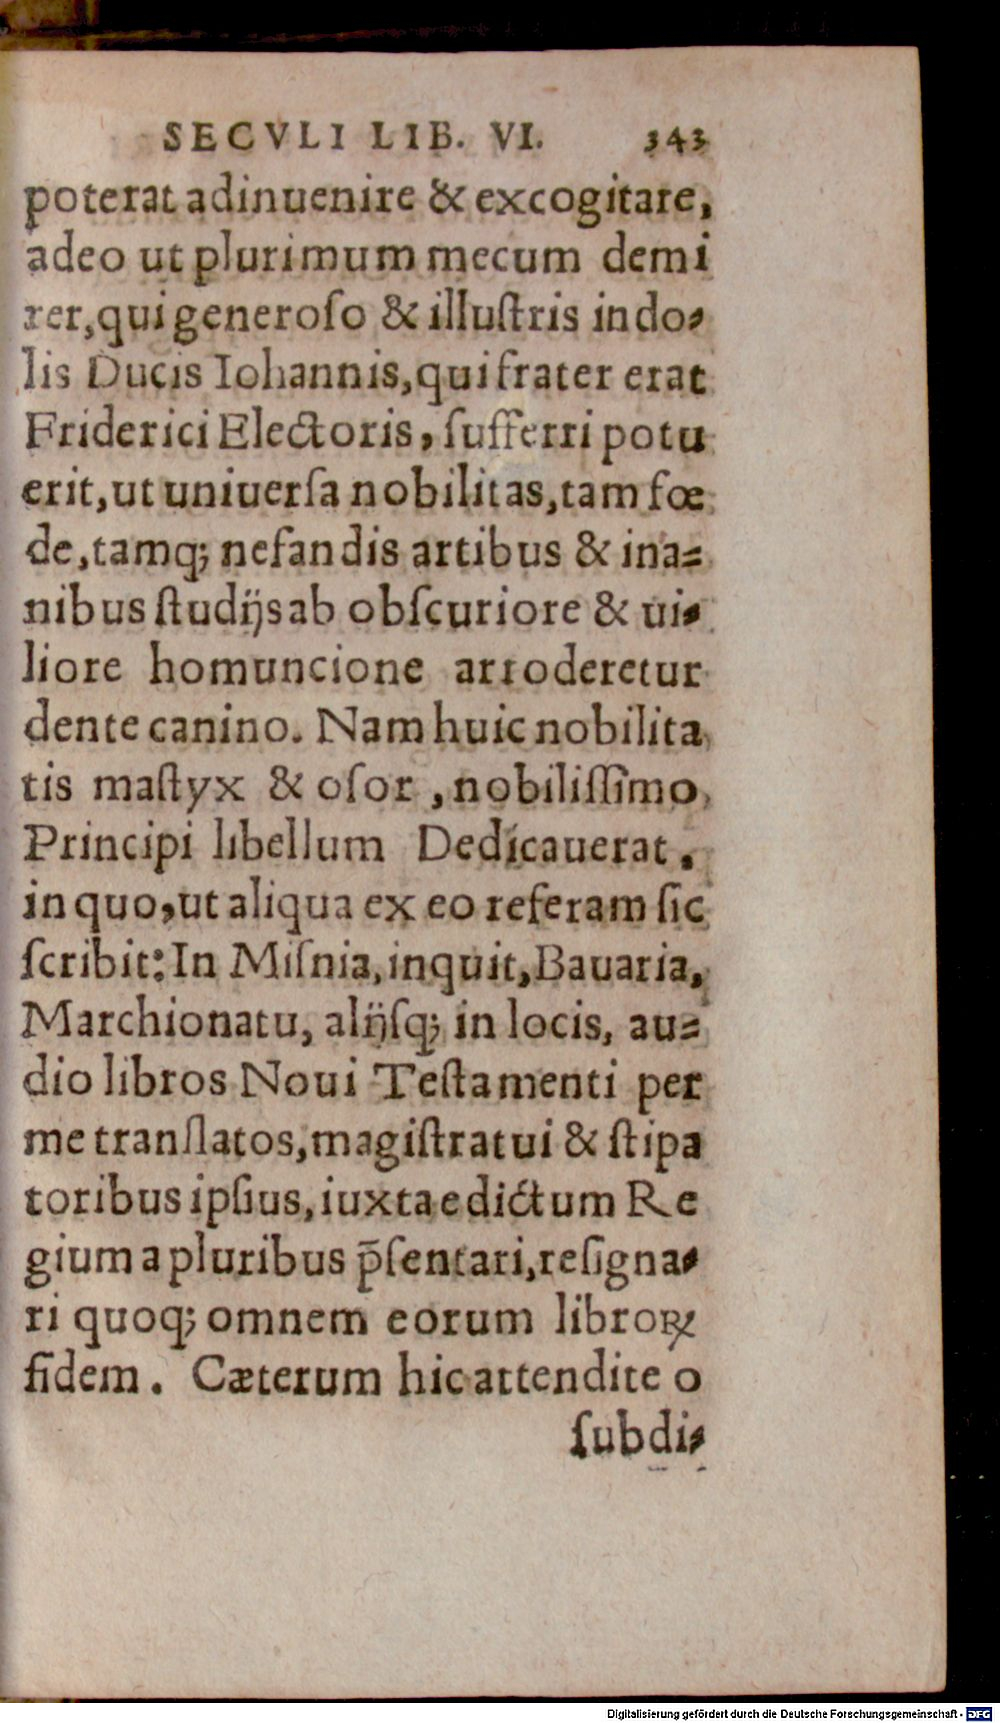 SECVLI LIB. VI. 343
poterat adinuenire & excogitare,
adeo ut plurimum mecum demi
rer, qui generoſo & illuſtris indo⸗
lis Ducis Iohannis, qui frater erat
Friderici Electoris, ſufferri potu
erit, ut uniuerſa nobilitas, tam fœ
de, tamq; nefandis artibus & ina⸗
nibus ſtudijs ab obſcuriore & ui⸗
liore homuncione arroderetur
dente canino. Nam huic nobilita
tis maſtyx & oſor , nobiliſſimo
Principi libellum Dedicauerat.
in quo, ut aliqua ex eo referam ſic
ſcribit: In Miſnia, inquit, Bauaria,
Marchionatu, alijſq; in locis, au⸗
dio libros Noui Teſtamenti per
me tranſlatos, magiſtratui & ſtipa
toribus ipſius, iuxta edictum Re
gium a pluribus p̄ſentari, reſigna⸗
ri quoq; omnem eorum libroꝝ
fidem. Cæterum hic attendite o
ſubdi⸗
Digitalisierung gefördert durch die Deutsche Forschungsgemeinschaft - DFG